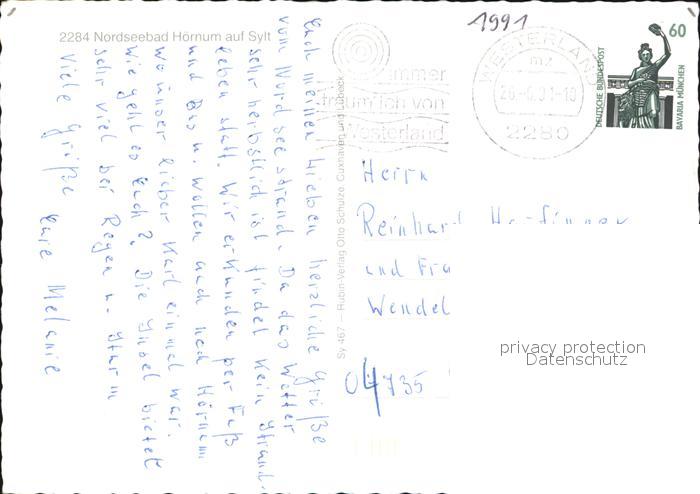 2284 Nordseebad Hörnum auf Sylt
1991
WESTERLAND
mz
26.-6.91-18
2280
ummer
träum' ich von
Westerland
60
DEUTSCHE BUNDESPOST
BAVARIA MÜNCHEN
Euch meinen Lieben herzliche Grüße
vom Nordseestrand. Da das Wetter
sehr herbstlich ist findet kein Strand-
leben statt. Wir erkunden per Fuß
und Bus u. wollen auch nach Hörnum
wo unser lieber Karl einmal war.
Wie geht es Euch? Die Insel bietet
sehr viel bei Regen u. Sturm
Viele Grüße Eure Melanie
Sy 467 – Rubin-Verlag Otto Schulze, Cuxhaven und Lübeck
Herrn
Reinhard
und Fra
Wendel
04735
privacy protection
Datenschutz